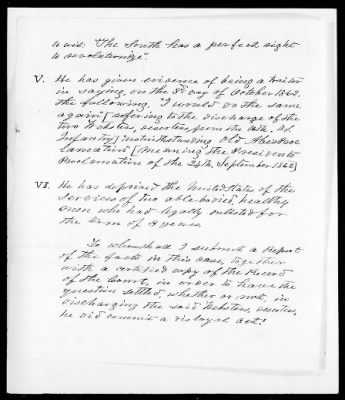 to wit: "The South has a perfect right
to revolutionize".
V. He has given evidence of being a traitor
in saying, on the 8th day of October 1862,
the following, "I would do the same
again [referring to the discharge of the
two Websters, deserters, from the 16th, Ind.
Infantry] notwithstanding Old Abe's Proc
lamation" [meaning the President's
Proclamation of the 24th, September 1862]
VI. He has deprived the United States of the
services of two able-bodied, healthy
men who had legally enlisted for
the term of 3 years
To whom shall I submit a Report
of the facts in this case, together
with a certified copy of the Record
of the Court, in order to have the
question settled, whether or not, in
discharging the said Websters, deserters,
he did commit a disloyal act?